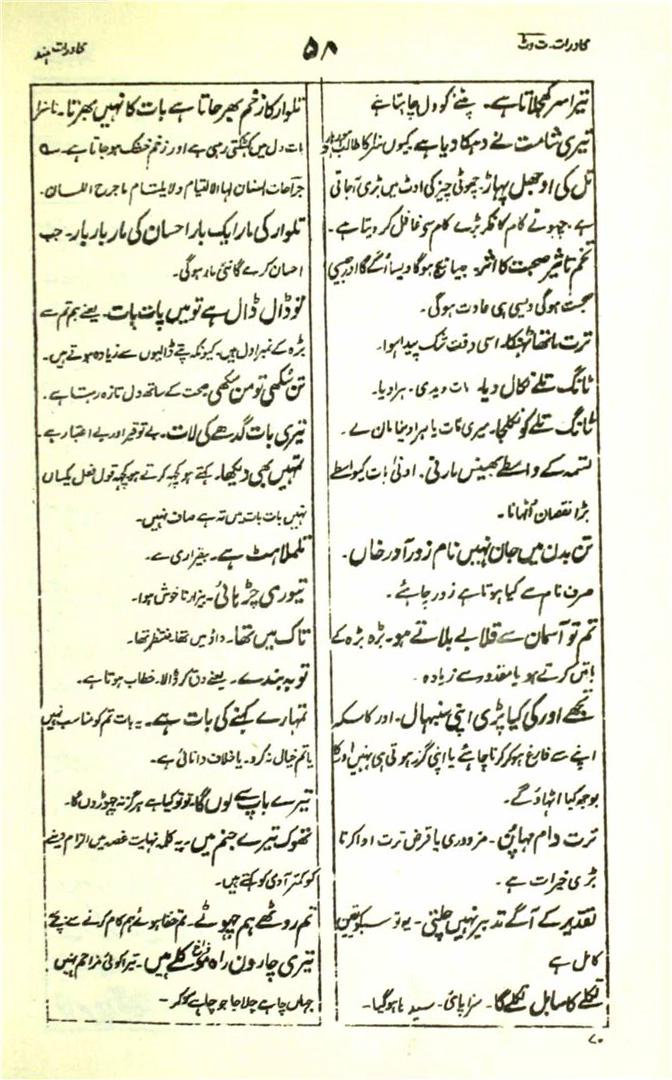 محاورات ت وٹ
۵۸
محاورات ہند
تیرا سر کھجلاتا ہے۔ پٹنے کو دل چاہتا ہے
تیری شامت نے دہکا دیا ہے کیوں سزا کا طالب ہوا
تل کی اوجھل پہاڑ۔ چھوٹی چیز کی اوٹ میں بڑی آجاتی
ہے۔ چھوٹے کام کا فکر بڑے کام سی غافل کر دیتا ہے۔
تخم تاثیر صحبت کا اثر۔ جیسا بیج ہوگا ویسا اُگے گا اور جیسی
صحبت ہوگی ویسی ہی عادت ہوگی۔
ترت ماتھا ٹھنکا۔ اسی وقت شک پیدا ہوا۔
ٹانگ تلے نکال دیا۔ مات دیدی۔ ہرا دیا۔
ٹانگ تلے کو نکلجا۔ میری مات یا ہرا دینا مان لے۔
تسمہ کے واسطے بھینس مارتی۔ ادنیٰ بات کیواسطے
بڑا نقصان اُٹھانا۔
تن بدن میں جان نہیں نام زور آور خاں۔
صرف نام سے کیا ہوتا ہے زور چاہئے۔
تم تو آسمان سے قلابے ملاتے ہو۔ بڑہ بڑہ کے
باتیں کرتے ہو یا مقدور سے زیادہ۔
تجھے اور کی کیا پڑی اپنی سنبھال۔ اور کا فکر
اپنے سے فارغ ہو کر کرنا چاہئے یا اپنی گزر ہوتی ہی نہیں اور کا
بوجھ کیا اٹھاؤ گے۔
ترت دام مہاپن۔ مزدوری یا قرض ترت ادا کرنا
بڑی خیرات ہے۔
تقدیر کے آگے تدبیر نہیں چلتی۔ یہ تو سبکو یقین
کامل ہے
تکلے کا سا بل نکلے گا۔ سزا پائی۔ سیدہا ہو گیا۔
تلوار کا زخم بھر جاتا ہے بات کا نہیں بھرتا۔ ناسزا
بات دل میں کھٹکتی رہتی ہے اور زخم خشک ہو جاتا ہے۔ سہ
جراحات السنان لہا الالتیام ولا یلتام ما جرح اللسان۔
تلوار کی مار ایک بار احسان کی مار بار بار۔ جب
احسان کرے گا نئی مار ہوگی۔
تو ڈال ڈال ہے تو میں پات پات۔ یعنے ہم تم سے
بڑہ کے نمبر اول ہیں۔ کیونکہ پتے ڈالیوں سے زیادہ ہوتے ہیں۔
تن سُکھی تو من سُکھی۔ صحت کے ساتھ دل تازہ رہتا ہے۔
تیری بات گدھے کی لات۔ بے توقیر اور بے اعتبار ہے۔
تمہیں بھی دیکھا۔ کہتے ہو کچھ کرتے ہو کچھ قول فعل یکساں
نہیں بات بات میں تہ ہے صاف نہیں۔
تلملاہٹ ہے۔ بیقراری ہے۔
تیوری چڑہائی۔ بیزار ناخوش ہوا۔
تاک میں تھا۔ داؤ میں تھا۔ منتظر تھا۔
توبہ بندے۔ یعنے دق کر ڈالا۔ خطاب ہوتا ہے۔
تمہارے کہنے کی بات ہے۔ یہ بات تم کو مناسب نہیں
یا تم خیال نہ کرو۔ یا خلاف دانائی ہے۔
تیرے باپ سے لوں گا۔ تو تو کیا ہے ہرگز نہ چھوڑوں گا۔
تھوک تیرے جنم میں۔ یہ کلمہ نہایت غصہ میں الزام دینے
کو کمتر آدمی کو کہتے ہیں۔
تم روٹھے ہم چھوٹے۔ تم خفا ہوئے ہم کام کرنے سے بچے
تیری چاروں راہ کھلے ہیں۔ تیرا کوئی مزاحم نہیں
جہاں چاہے چلا جا جو چاہے کر۔